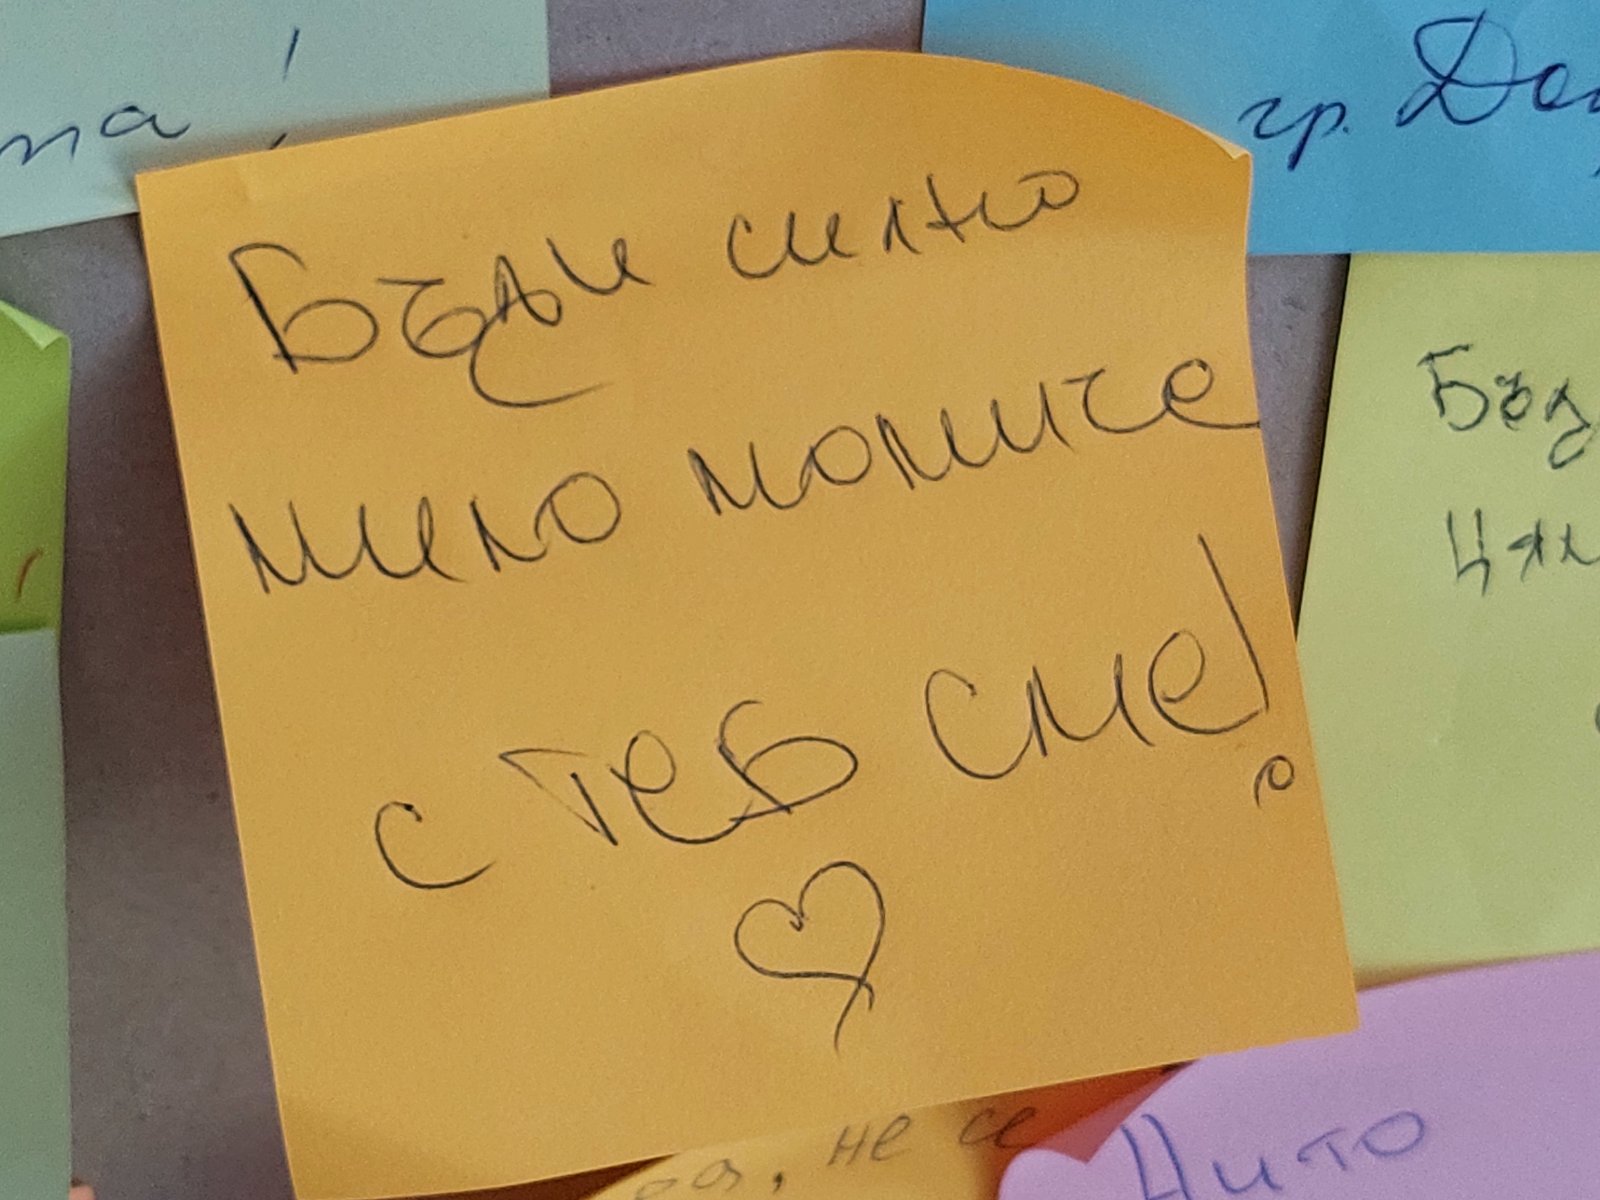 та!
гр. До
Бъди силно
мило момиче
с теб сме!
Бъд
Цял
, не се
Нито